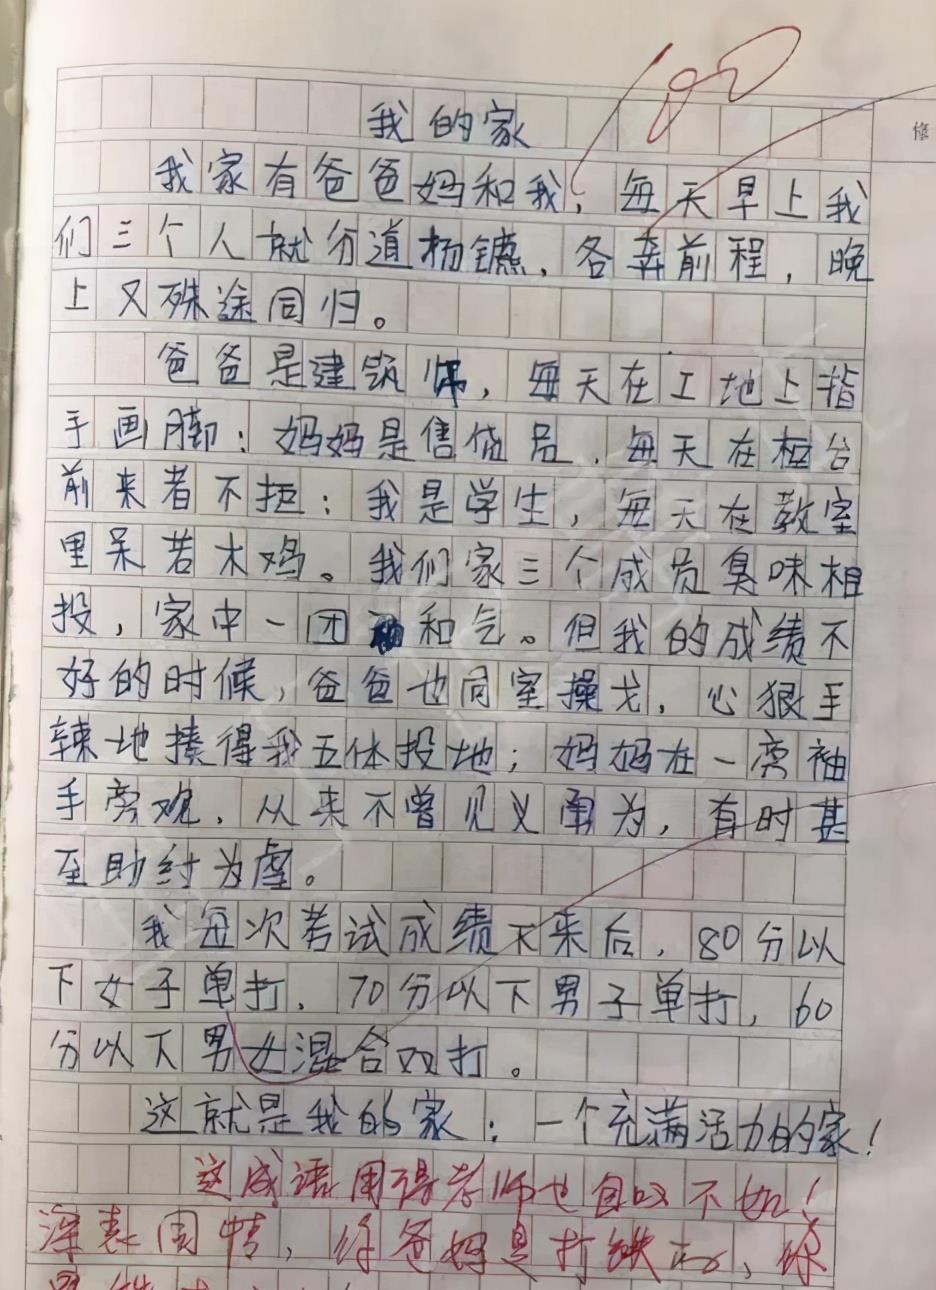 100
修
我的家
我家有爸爸妈和我，每天早上我
们三个人就分道扬镳，各奔前程，晚
上又殊途同归。
爸爸是建筑师，每天在工地上指
手画脚；妈妈是售货员，每天在柜台
前来者不拒；我是学生，每天在教室
里呆若木鸡。我们家三个成员臭味相
投，家中一团和气。但我的成绩不
好的时候，爸爸也同室操戈，心狠手
辣地揍得我五体投地；妈妈在一旁袖
手旁观，从来不曾见义勇为，有时甚
至助纣为虐。
我每次考试成绩下来后，80分以
下女子单打，70分以下男子单打，60
分以下男女混合双打。
这就是我的家：一个充满活力的家！
这成语用得老师也自叹不如！
深表同情，你爸妈是打铁的，你